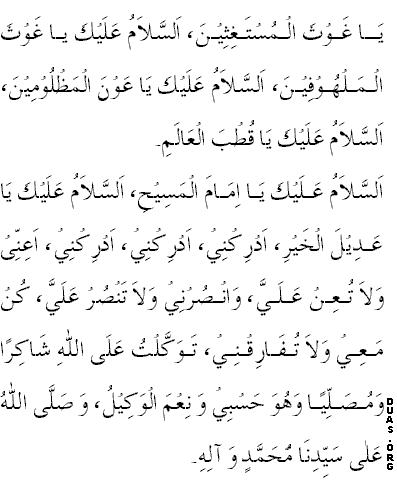 يَا غَوْثَ الْمُسْتَغِثِيْنَ، اَلسَّلَامُ عَلَيْكَ يا غَوْثَ
الْمَلْهُوْفِيْنَ، اَلسَّلَامُ عَلَيْكَ يَا عَوْنَ الْمَظْلُومِيْنَ،
اَلسَّلَامُ عَلَيْكَ يَا قُطْبَ الْعَالَمِ.
اَلسَّلَامُ عَلَيْكَ يَا اِمَامَ الْمَسِيْحِ، اَلسَّلَامُ عَلَيْكَ يَا
عَدِيْلَ الْخَيْرِ، اَدْرِكْنِيْ، اَدْرِكْنِيْ، اَدْرِكْنِيْ، اَعِنِّىْ
وَلَا تُعِنْ عَلَيَّ، وَانْصُرْنِيْ وَلَا تَنْصُرْ عَلَيَّ، كُنْ
مَعِيْ وَلَا تُفَارِقْنِيْ، تَوَكَّلْتُ عَلَى اللّٰهِ شَاكِرًا
وَمُصَلِّيًا وَهُوَ حَسْبِيْ وَ نِعْمَ الْوَكِيْلُ، وَ صَلَّى اللّٰهُ
عَلٰى سَيِّدِنَا مُحَمَّدٍ وَ آلِهِ.
DUAS.ORG